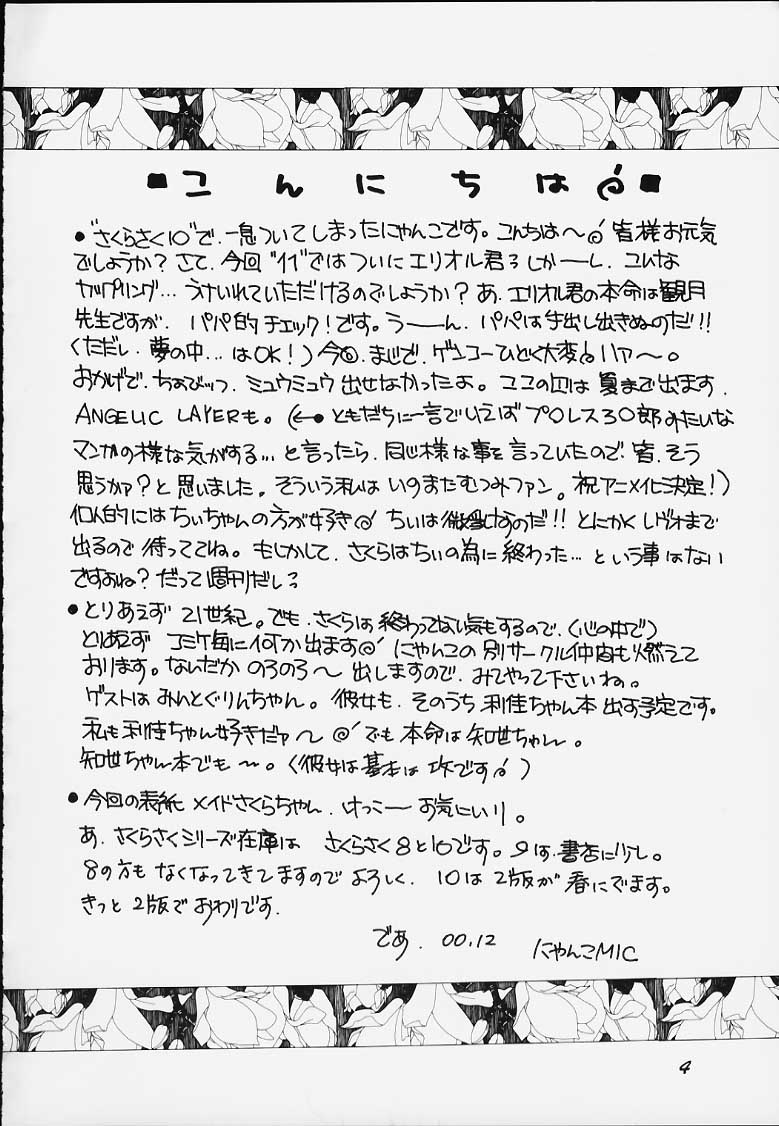 ■こんにちは■
●"さくらさく10"で、一息ついてしまったにゃんこです。こんちは〜 皆様お元気
でしょうか?さて、今回"11"ではついにエリオル君 しかーし、こんな
カップリング…うけいれていただけるのでしょうか?あ、エリオル君の本命は観月
先生ですが、パパ的チェック!です。うーーん、パパは手出し出きぬのだ!!
(ただし、夢の中…はOK!)今回、まじで、ゲンコーひどく大変 ハァ〜。
おかげで、ちょびッツ、ミュウミュウ出せなかったよ。ココの は夏まで出ます、
ANGELIC LAYERも。(←●ともだちに一言でいえばプロレス3〇郎みたいな
マンガの様な気がする…と言ったら、同じ様な事を言っていたので、皆、そう
思うかァ?と思いました。そういう私はいのまたむつみファン。祝アニメ化決定!)
個人的にはちぃちゃんの方が好き ちぃは なのだ!!とにかくレヴォまで
出るので待っててね。もしかして、さくらはちぃの為に終わった…という事はない
ですよね?だって週刊だし
●とりあえず21世紀。でも、さくらは終わってない気もするので、(心の中で)
とりあえずコミケ毎に何か出ます にゃんこの別サークル仲間も燃えて
おります。なんだかのろのろ〜出しますので、みてやって下さいね。
ゲストはみんとぐりんちゃん。彼女も、そのうち利佳ちゃん本出す予定です。
私も利佳ちゃん好きだァ〜 でも本命は知世ちゃん。
知世ちゃん本でも〜。(彼女は基本は攻です)
●今回の表紙メイドさくらちゃん、けっこーお気にいり。
あ、さくらさくシリーズ在庫は さくらさく8と10です。9は、書店に少し。
8の方もなくなってきてますのでよろしく、10は2版が春にでます。
きっと2版でおわりです。
であ、00.12 にゃんこMIC
4